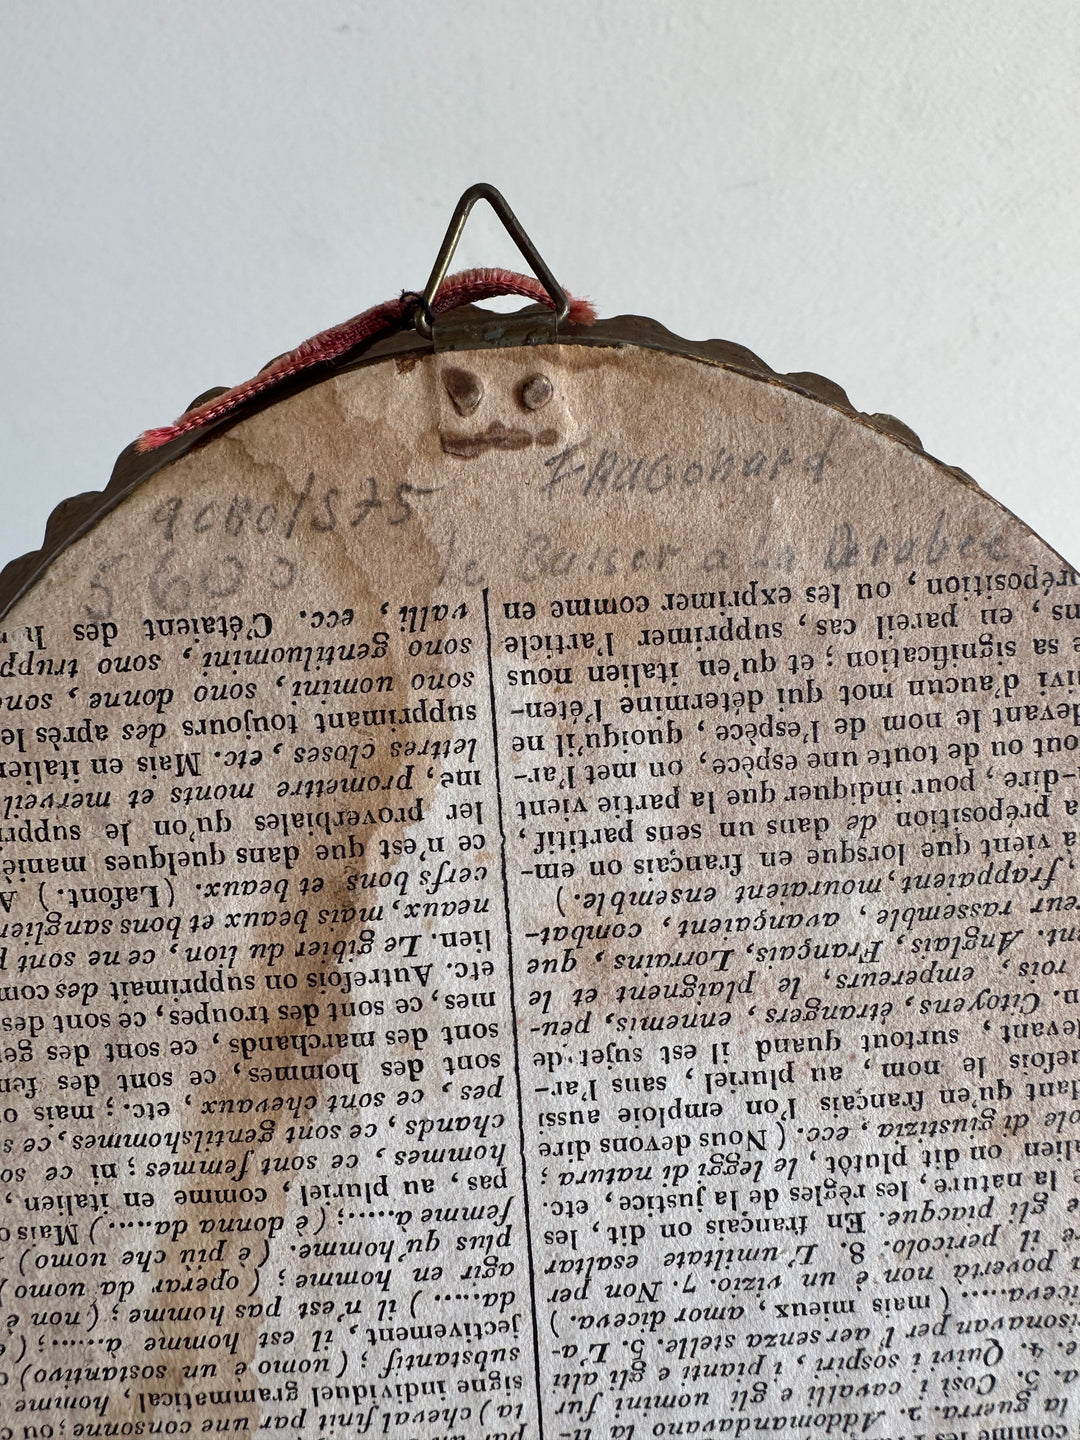 Fragonard
5600 le Baiser a la Derobee
comme les
la guerra. 2. Addomandavano la li-
a. 3. Così i cavalli e gli uomini fur
e. 4. Quivi i sospiri, i pianti e gli alti
risonavan per l'aer senza stelle. 5. L'a-
diceva.... ( mais mieux, amor diceva. )
a povertà non è un vizio. 7. Non per
re il pericolo. 8. L'umiltate esaltar
e gli piacque. En français on dit, les
e la nature, les règles de la justice, etc.
alien on dit plutôt, le leggi di natura ;
ole di giustizia, ecc. ( Nous devons dire
dant qu'en français l'on emploie aussi
uefois le nom, au pluriel, sans l'ar-
devant, surtout quand il est sujet de
n. Citoyens, étrangers, ennemis, peu-
rois, empereurs, le plaignent et le
nt. Anglais, Français, Lorrains, que
reur rassemble, avançaient, combat-
, frappaient, mouraient ensemble. )
a vient que lorsque en français on em-
a préposition de dans un sens partitif,
-dire, pour indiquer que la partie vient
out ou de toute une espèce, on met l'ar-
devant le nom de l'espèce, quoiqu'il ne
ivi d'aucun mot qui détermine l'éten-
e sa signification ; et qu'en italien nous
ns, en pareil cas, supprimer l'article
préposition, ou les exprimer comme en
par un
la ) cheval ) finit par une consonne ; ou
signe individuel grammatical, homme
substantif ; ( uomo è un sostantivo )
jectivement, il est homme à.....; (
da..... ) il n'est pas homme ; ( non è
agir en homme ; ( operar da uomo )
plus qu'homme. ( è più che uomo )
femme à.....; ( è donna da..... ) Mais
pas, au pluriel, comme en italien,
hommes, ce sont femmes ; ni ce so
chands, ce sont gentilshommes, ce s
pes, ce sont chevaux, etc. ; mais
sont des hommes, ce sont des fem
sont des marchands, ce sont des gen
mes, ce sont des troupes, ce sont des
etc. Autrefois on supprimait des com
lien. Le gibier du lion, ce ne sont p
neaux, mais beaux et bons sanglier
cerfs bons et beaux. ( Lafont. ) A
ce n'est que dans quelques maniè
ler proverbiales qu'on le suppri
me, promettre monts et merveil
lettres closes, etc. Mais en italien
supprimant toujours des après le
sono uomini, sono donne, sono
sono gentiluomini, sono trupp
valli, ecc. C'étaient des h